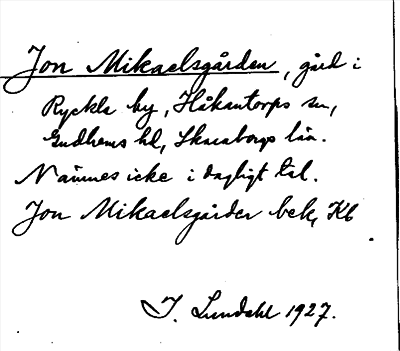 Jon Mikaelsgården, gård i
Ryckla by, Håkantorps sn,
Gudhems hd, Skaraborgs län.
Nämnes icke i dagligt tal.
Jon Mikaelsgården bek, Kb
J. Lundahl 1927.